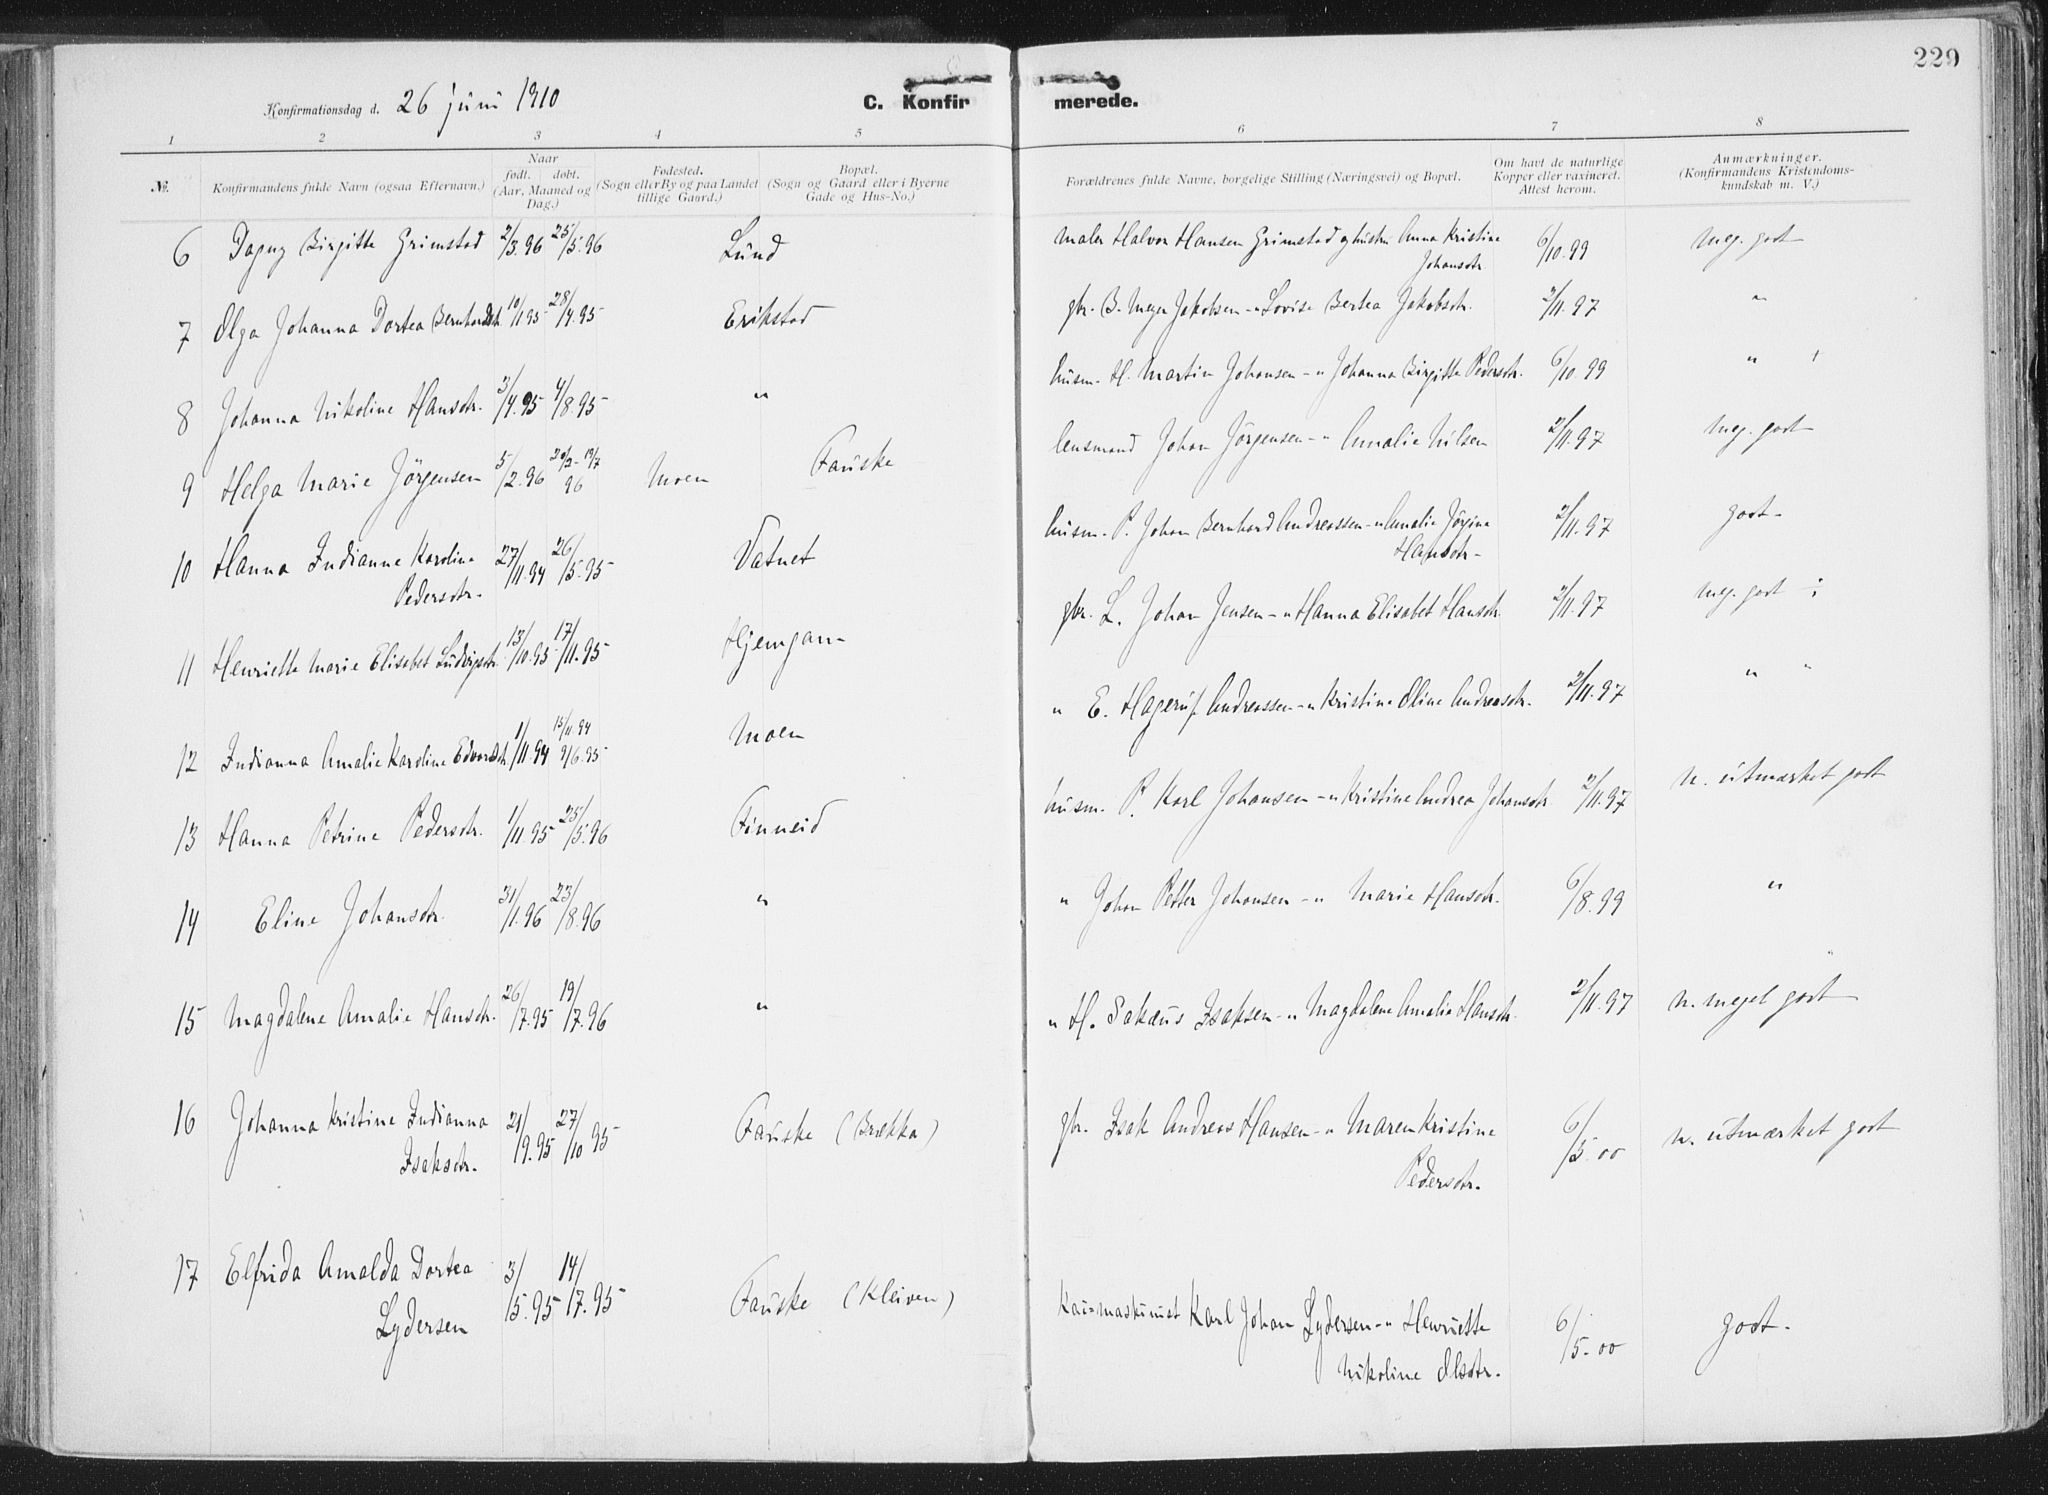 229
Konfirmationsdag d. 26 juni 1910
C. Konfir merede.
1 2 3 4 5 6 7 8
No. Konfirmandens fulde Navn (ogsaa Efternavn.) Naar født. døbt. (Aar, Maaned og Dag.) Fødested. (Sogn eller By og paa Landet tillige Gaard.) Bopæl. (Sogn og Gaard eller i Byerne Gade og Hus-No.) Forældrenes fulde Navne, borgelige Stilling (Næringsvei) og Bopæl. Om havt de naturlige Kopper eller vaxineret. Attest herom. Anmærkninger. (Konfirmandens Kristendoms-kundskab m. V.)
6 Dagny Birgitte Grimstad 2/3.96 25/5.96 Lund maler Halvor Hansen Grimstad og hustru Anna Kristine Johansdtr. 6/10.99 Meg. godt
7 Olga Johanna Dortea Bernhardsdtr. 10/1 95 28/4.95 Erikstad gbr. B. Meyer Jakobsen - " Lovise Bertea Jakobsdtr. 2/11.97 "
8 Johanna Nikoline Hansdtr. 3/4.95 4/8.95 " husm. H. Martin Johansen - " Johanna Birgitte Pedersdtr. 6/10.99 "
9 Helga Marie Jörgensen 5/2.96 20/2 - 19/7 96 Moen Fauske lensmand Johan Jörgensen - " Amalie Nilsen 2/11.97 Meg. godt
10 Hanna Indianne Karoline Pedersdtr. 27/11.94 26/5.95 Vatnet husm. P. Johan Bernhard Andreassen - " Amalie Jörgine Hansdtr. 2/11.97 godt.
11 Henriette Marie Elisabet Ludvigsdtr. 13/10.95 17/11.95 Hjemgam- gbr. L. Johan Jensen - " Hanna Elisabet Hansdtr. 2/11.97 Meg. godt
12 Indianna Amalie Karoline Edvardsdtr. 1/11.94 15/11.94 9/6.95 Moen " E. Hagerup Andreassen - " Kristine Oline Andreasdtr. 2/11.97 " "
13 Hanna Petrine Pedersdtr. 1/11.95 25/5.96 Finneid husm. P. Karl Johansen - " Kristine Andrea Johansdtr. 2/11.97 N. utmærket godt
14 Eline Johansdtr. 31/1.96 23/8.96 " " Johan Petter Johansen - " Marie Hansdtr. 6/8.99 "
15 Magdalene Amalie Hansdtr. 26/7.95 19/7.96 " " H. Sakæus Isaksen - " Magdalene Amalie Hansdtr. 2/11.97 N. meget godt
16 Johanna Kristine Indianna Isaksdtr. 21/9.95 27/10 95 Fauske (Brekka) gbr. Isak Andreas Hansen - " Maren Kristine Pedersdtr. 6/5.00 N. utmærket godt
17 Elfrida Amalda Dortea Lydersen 3/5.95 14/7.95 Fauske (Kleiven) Kai=maskinist Karl Johan Lydersen - " Henriette Nikoline Olsdtr. 6/5.00 godt.